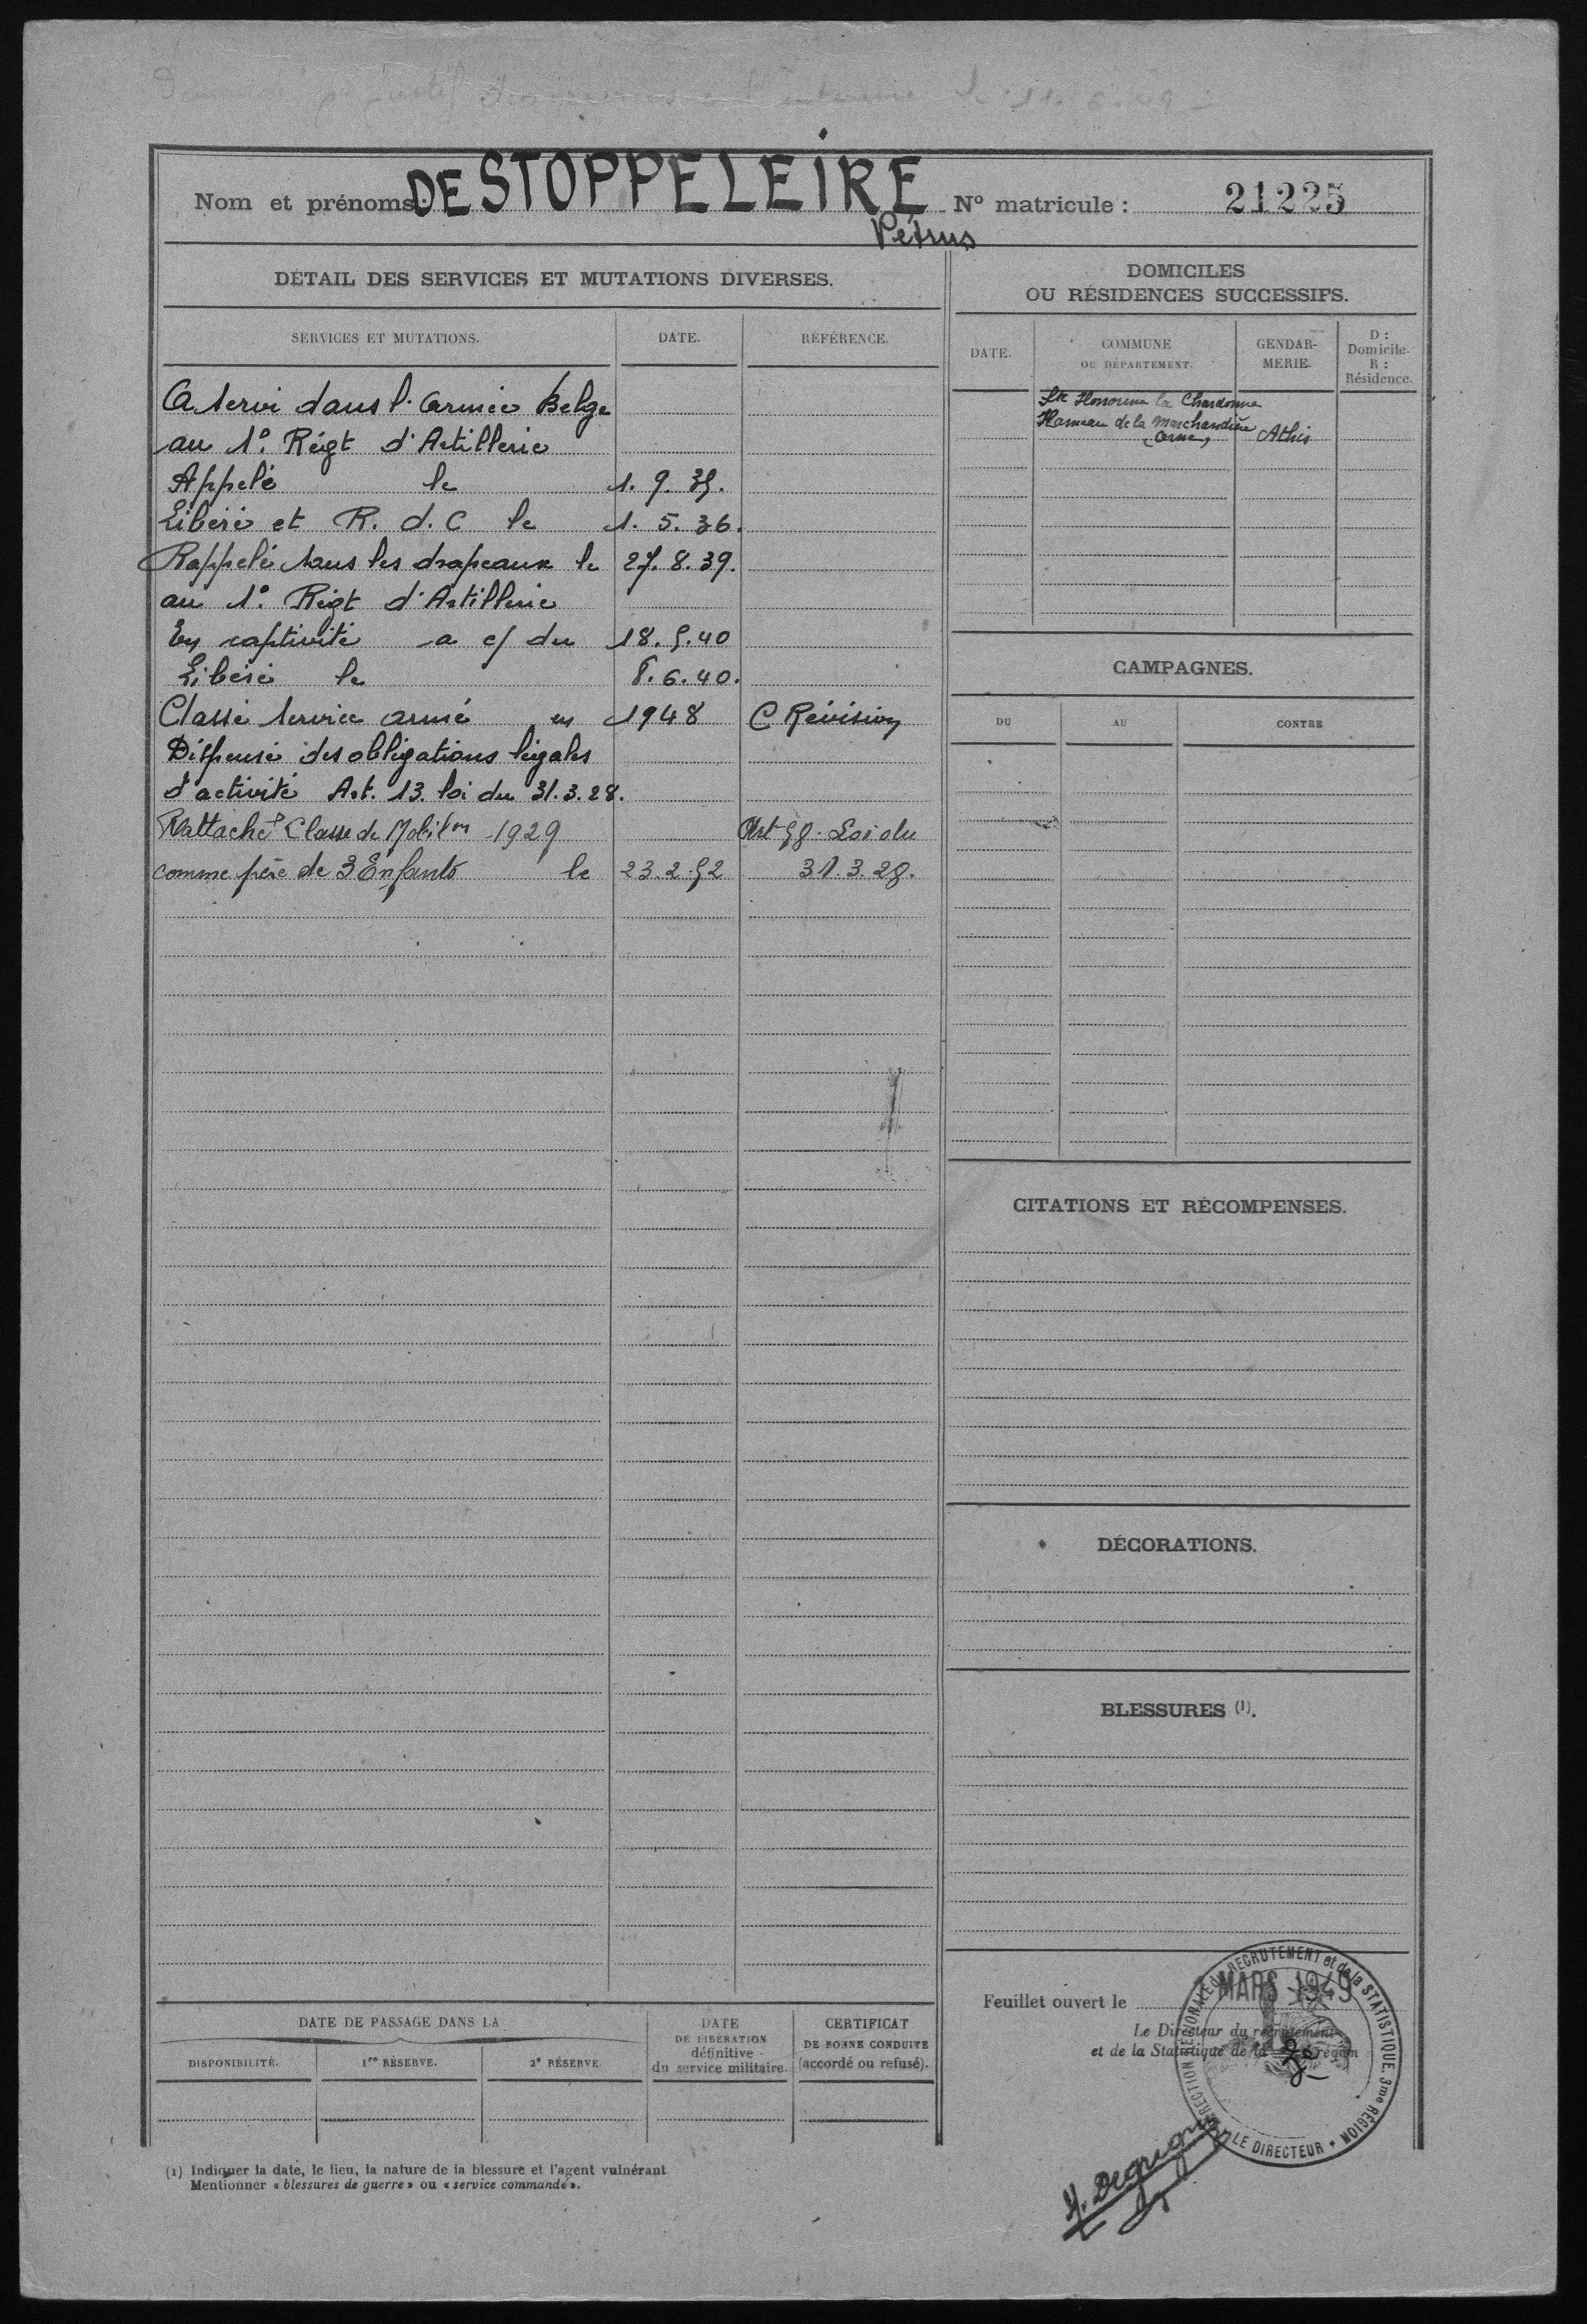 Nom et prénoms: DE STOPPELEIRE N° matricule : 21225
Pétrus
DÉTAIL DES SERVICES ET MUTATIONS DIVERSES.
SERVICES ET MUTATIONS. DATE. RÉFÉRENCE.
A servi dans l'armée Belge
au 1° Régt d'Artillerie
Appelé le 1. 9. 35.
Libéré et R. d. C le 1. 5. 36.
Rappelé sous les drapeaux le 27. 8. 39.
au 1° Régt d'Artillerie
En captivité a c/ du 18. 5. 40
Libéré le 8. 6. 40.
Classé service armé en 1948 C Révision
Dispensé des obligations légales
d'activité Art. 13. loi du 31. 3. 28.
Rattaché Classe de Mobilon 1929 Art 58. Loi du
comme père de 3 Enfants le 23. 2. 52 31. 3. 28.
DOMICILES
OU RÉSIDENCES SUCCESSIFS.
DATE. COMMUNE GENDAR- D :
OU DÉPARTEMENT. MERIE. Domicile.
R :
Résidence.
Ste Honorine la Chardonne
Hameau de la Marchandière
(Orne) Athis
CAMPAGNES.
DU AU CONTRE
CITATIONS ET RÉCOMPENSES.
DÉCORATIONS.
BLESSURES (1).
Feuillet ouvert le MARS 1949
Le Directeur du recrutement
et de la Statistique de la 3e région
DIRECTION RÉGIONALE DU RECRUTEMENT et de la STATISTIQUE. 3me RÉGION
LE DIRECTEUR
DATE DE PASSAGE DANS LA
DISPONIBILITÉ. 1re RÉSERVE. 2e RÉSERVE.
DATE
DE LIBÉRATION
définitive
du service militaire.
CERTIFICAT
DE BONNE CONDUITE
(accordé ou refusé).
(1) Indiquer la date, le lieu, la nature de la blessure et l'agent vulnérant
Mentionner « blessures de guerre » ou « service commandé ».